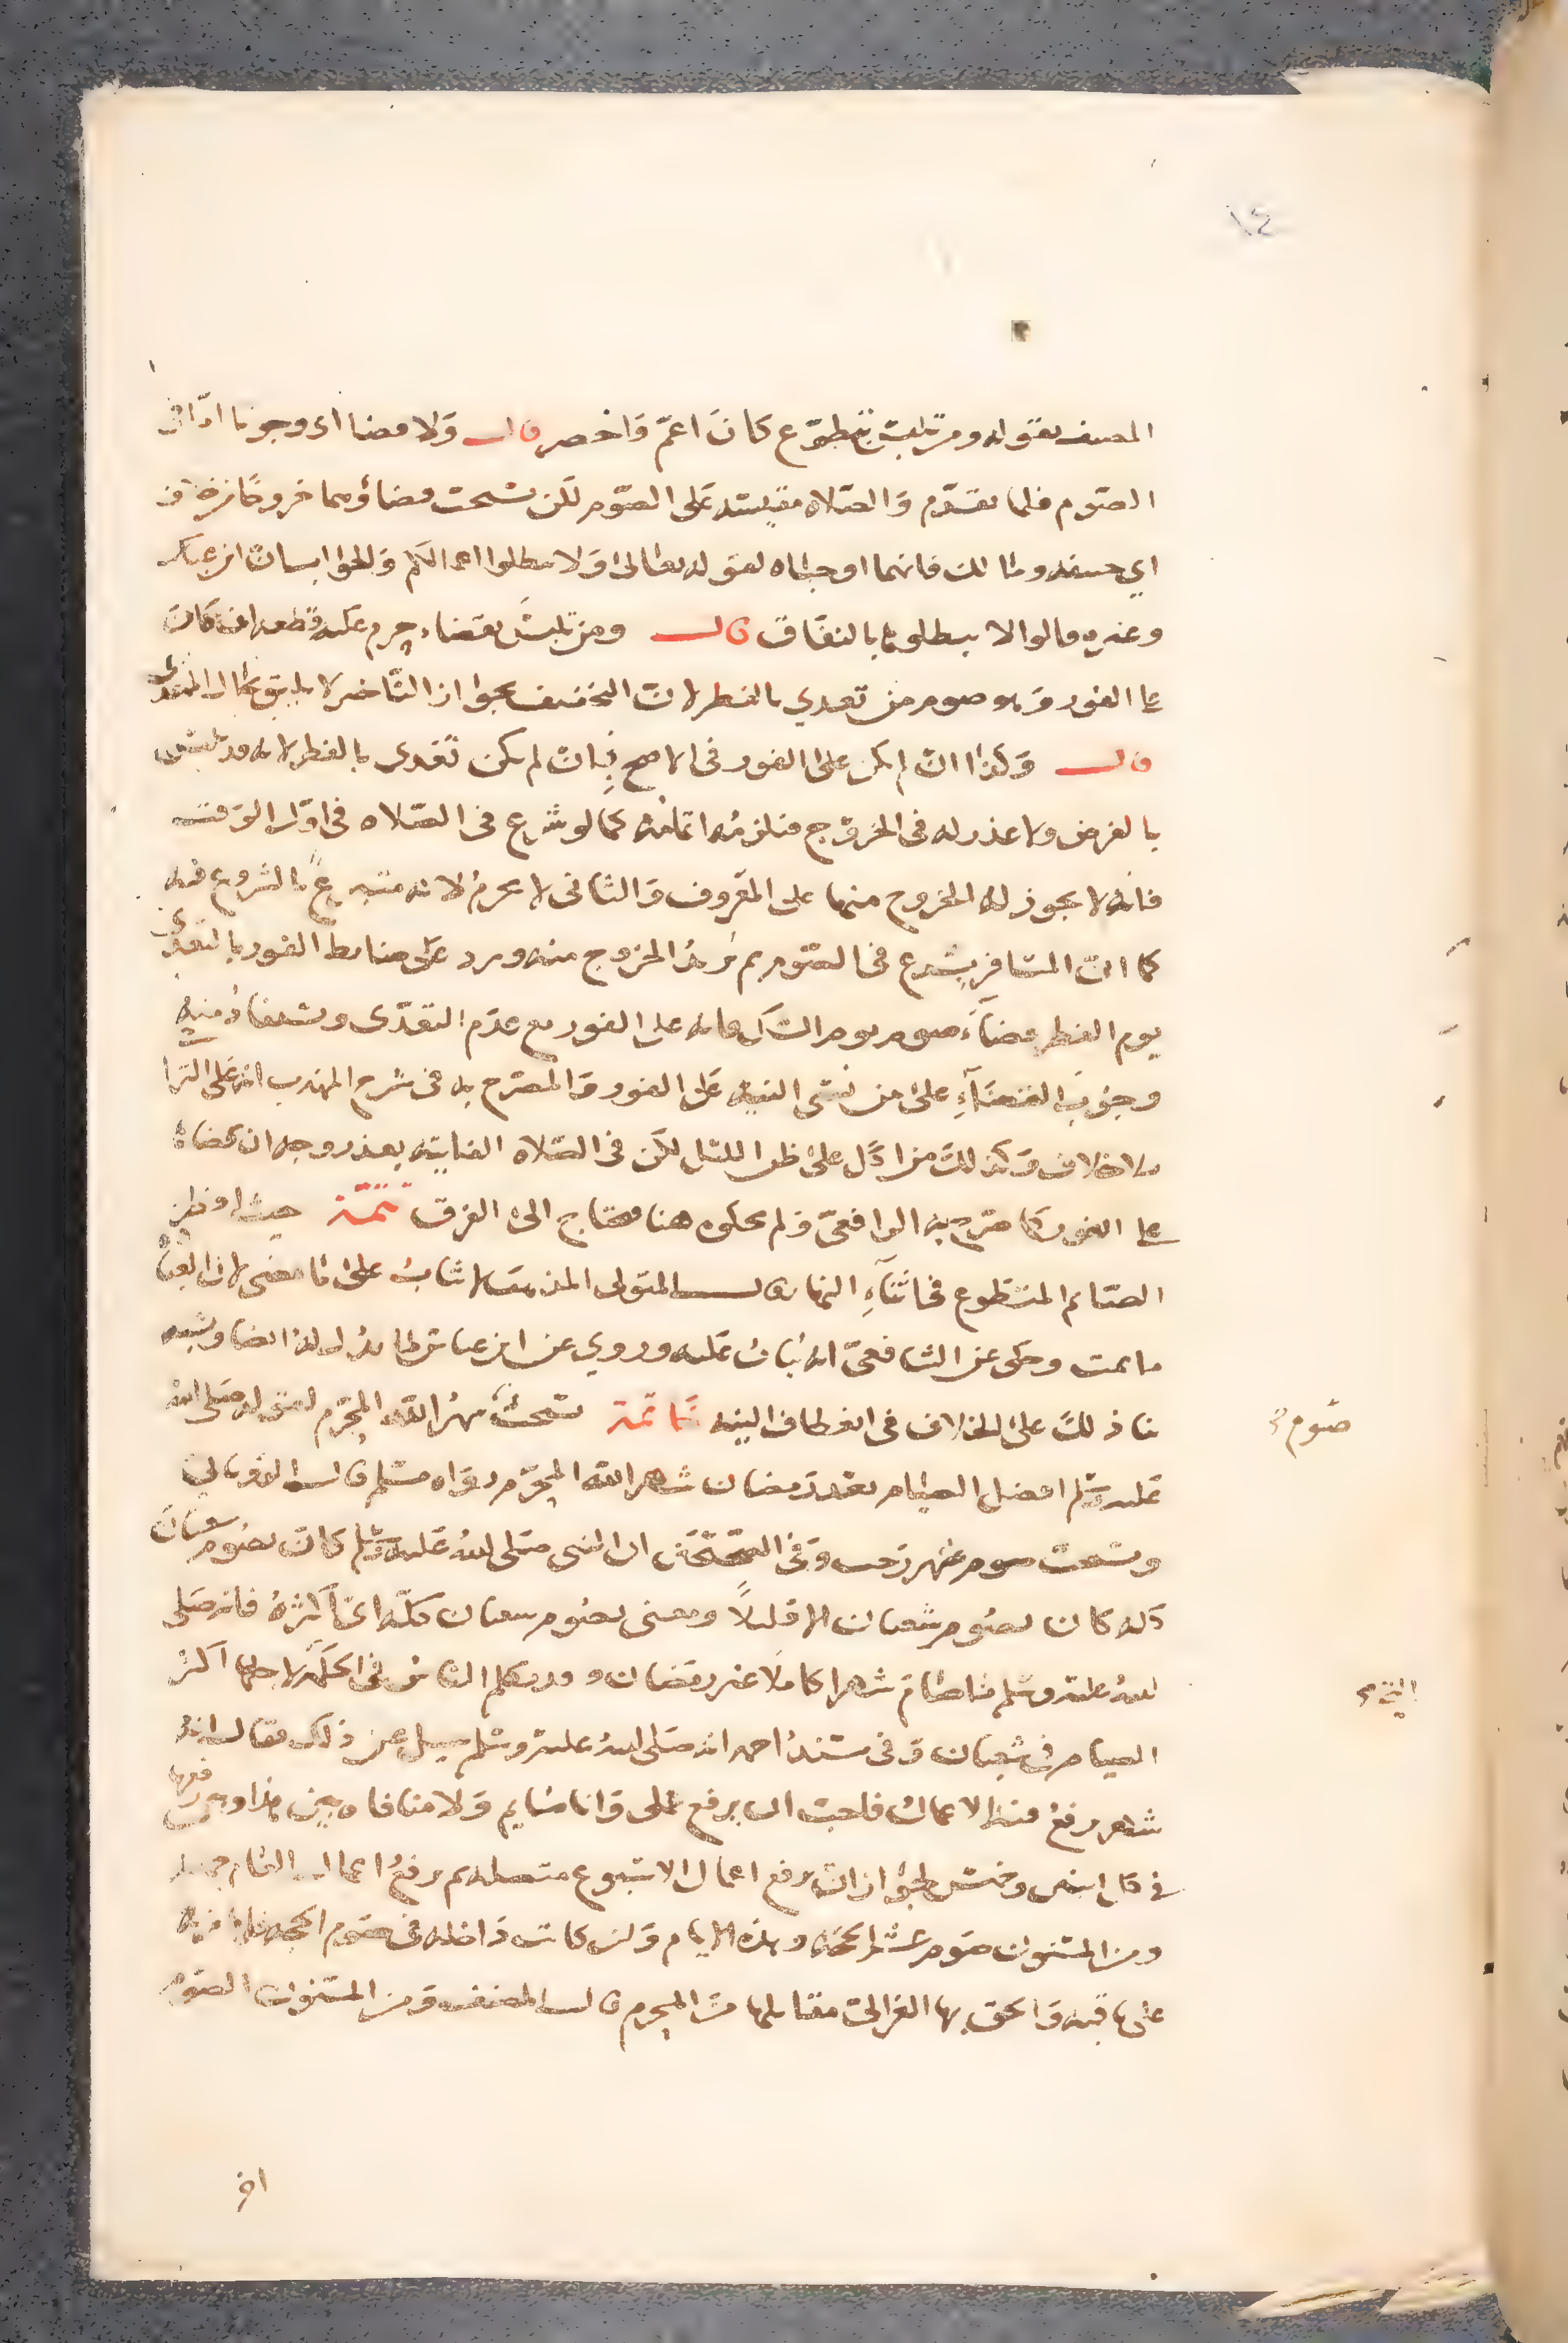 ١٤
المصنف بقوله ومن تلبس بتطوع كان اعم واخصر قال ولا قضا اى وجوبا اما فى
الصوم فلما تقدم والصلاة مقيسة على الصوم لكن يستحب قضاؤهما خروجا من خلاف
ابي حنيفة ومالك فانهما اوجباه لقوله تعالى ولا تبطلوا اعمالكم والجواب ان ابن عباس
وغيره قالوا لا تبطلوها بالنفاق قال ومن تلبس بقضاء حرم عليه قطعه ان كان
على الفور وهو صوم من تعدي بالفطر لان التخفيف بجواز التاخير لا يليق بحال المتعدى
قال وكذا ان لم يكن على الفور فى الاصح بان لم يكن تعدى بالفطر لانه قد تلبس
بالفرض ولا عذر له فى الخروج فيلزمه اتمامه كما لو شرع فى الصلاه فى اول الوقت
فانه لا يجوز له الخروج منها على المعروف والثانى لا يحرم لانه متبرع بالشروع فيه
كما ان المسافر يشرع فى الصوم ثم يريد الخروج منه ويرد على ضابط الفور بالتعدى
يوم الفطر قضاء صوم يوم الشك فانه على الفور مع عدم التعدى ويستفاد منه
وجوب القضاء على من نسى النية على الفور والمصرح به فى شرح المهذب انه على التراخى
بلا خلاف لكن فى الصلاة الفايتة بعذر وجه ان قضاه
على الفور كما صرح به الرافعى ولم يحكوه هنا فيحتاج الى الفرق تتمة حيث افطر
الصائم المتطوع فى اثناء النهار قال المتولى المذهب لا يثاب على ما مضى لان العبادة
ما تمت وحكى عن الشافعى انه يثاب عليه وروي عن ابن عباس ما يدل لهذا ايضا ويشبه
بنا ذلك على الخلاف فى انعطاف النية خاتمة يستحب شهر الله المحرم لقوله صلى الله
صوم
عليه وسلم افضل الصيام بعد رمضان شهر الله المحرم رواه مسلم قال الغزالي
ويستحب صوم شهر رجب وفى الصحيحين ان النبى صلى الله عليه وسلم كان يصوم شعبان
كله كان يصوم شعبان الا قليلا ومعنى يصوم شعبان كله اى اكثره فانه صلى
الله عليه وسلم ما صام شهرا كاملا غير رمضان وقد تكلم الناس فى الحكمة لاجلها اكثر
الصيام فى شعبان وفى مسند احمد انه صلى الله عليه وسلم سيل عن ذلك فقال انه
شهر يرفع فيه الاعمال فاحب ان يرفع عملى وانا صايم ولا منافاه بين هذا وبين رفعها
فى كل اثنين وخميس لجواز ان يرفع اعمال الاسبوع متصله ثم يرفع اعمال العام جملة
ومن المسنون صوم عشر الحجة وهذه الايام ولئن كانت داخله فى صوم الحجه
والحق بها الغزالى مقابلها من المحرم قال المصنف ومن المسنون الصوم
اخر